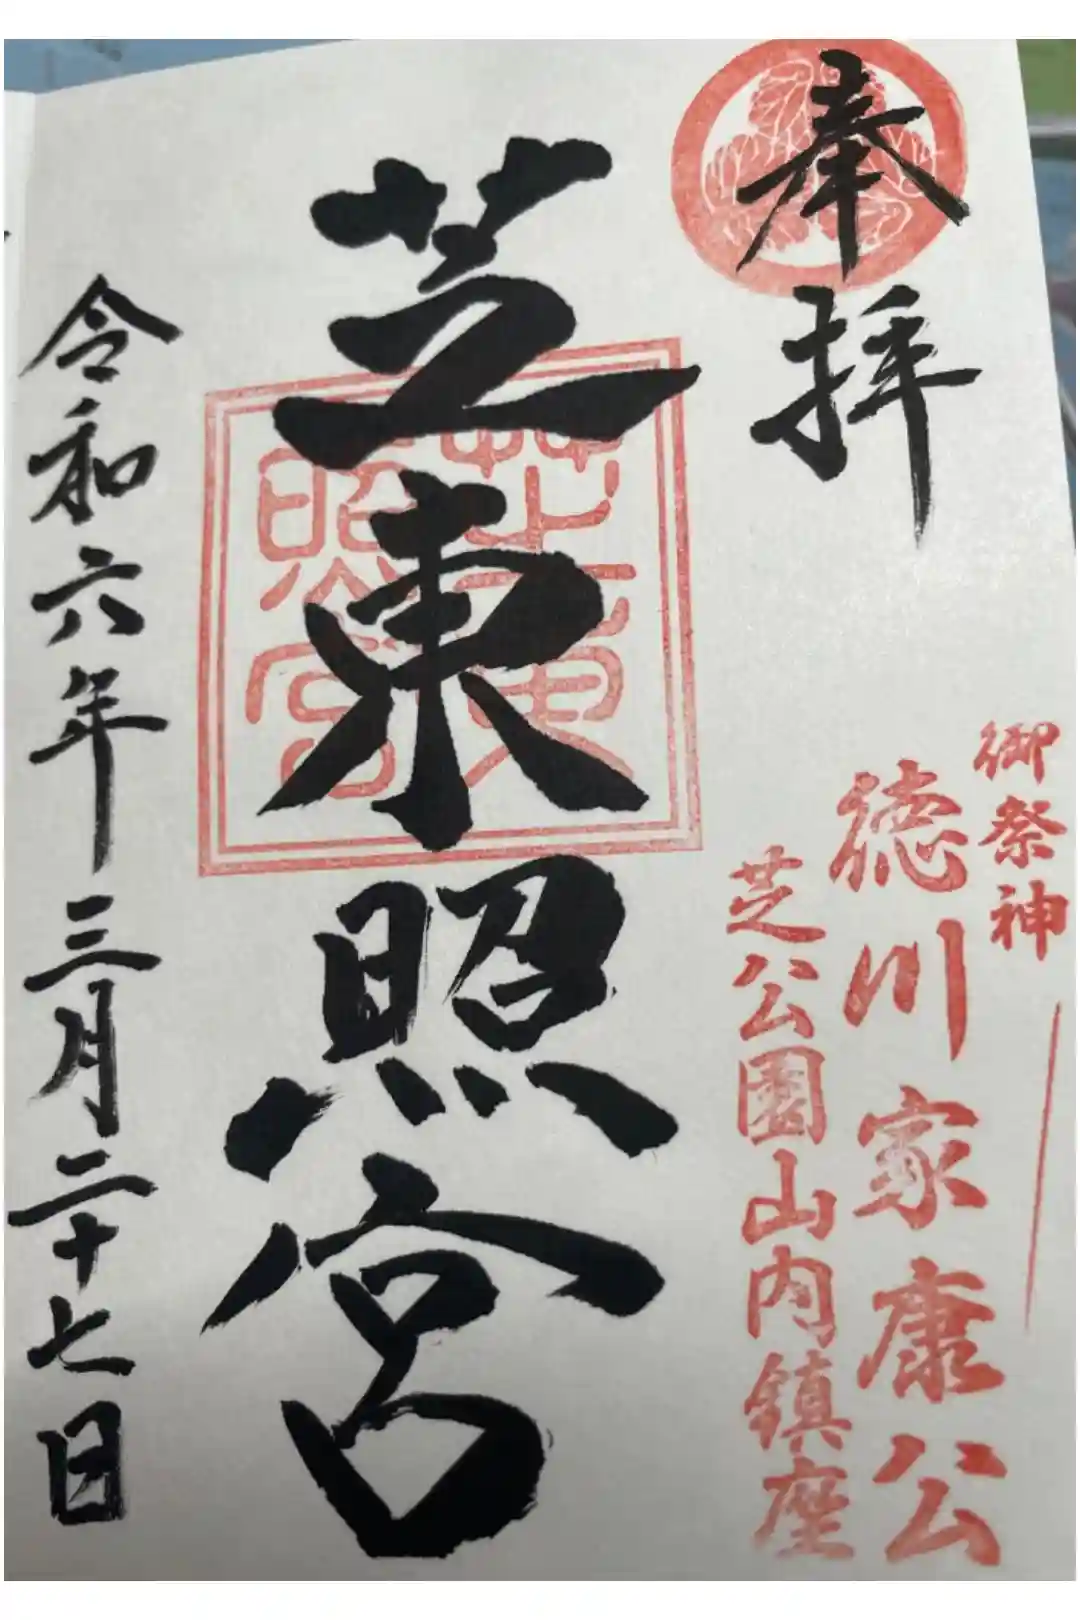 奉拝
御祭神
徳川家康公
芝公園山内鎮座
芝東照宮
芝東
照宮
令和六年三月二十七日